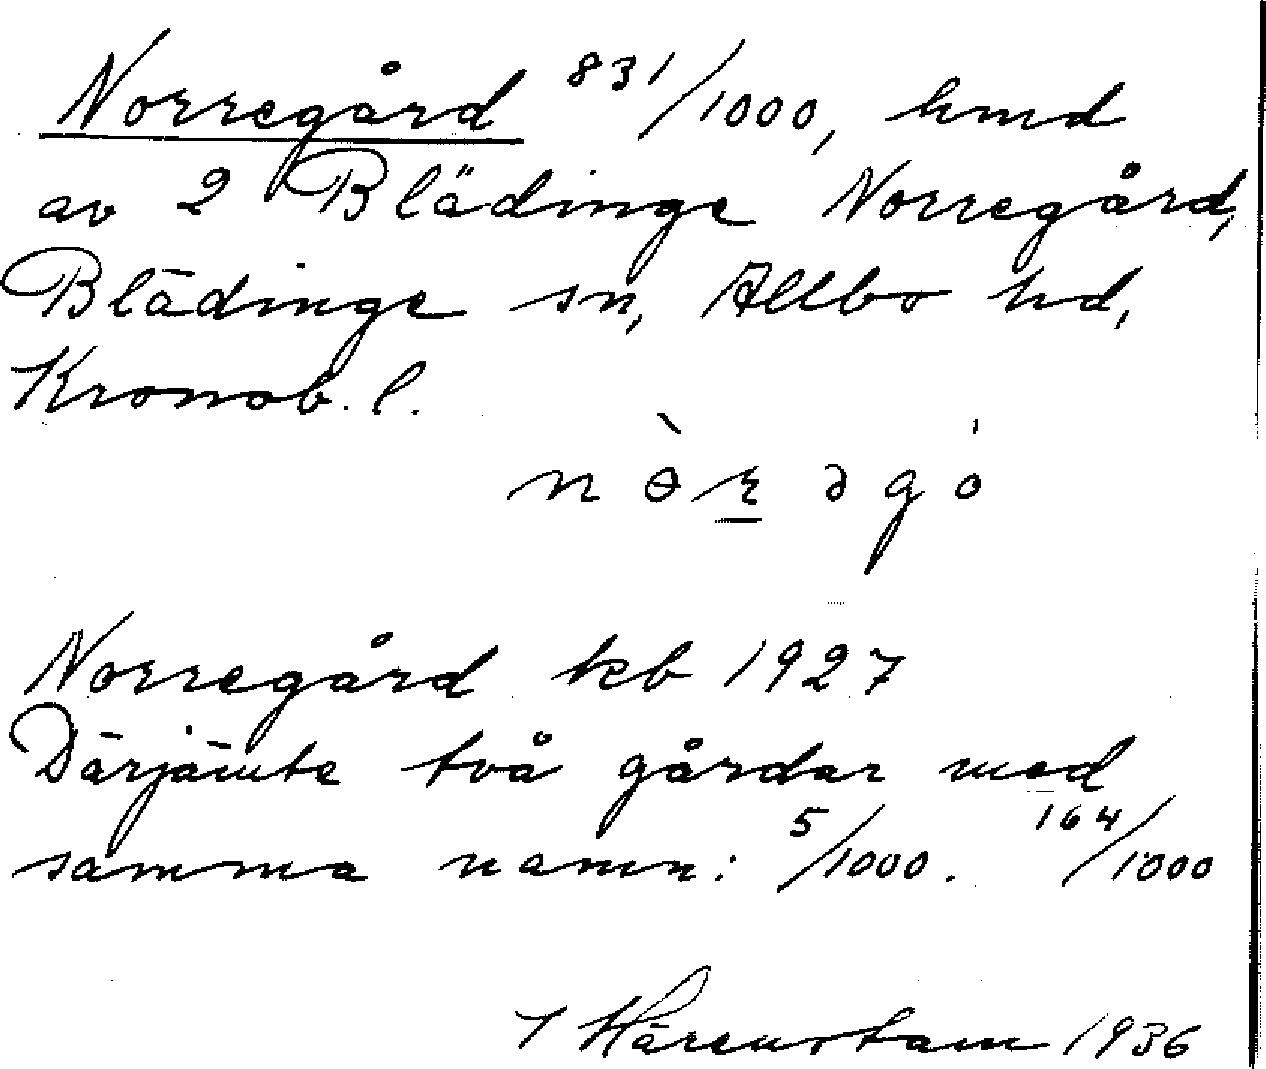 Norregård 831/1000, hmd
av 2 Blädinge Norregård,
Blädinge sn, Allbo hd,
Kronob. l.
nɵ̀ɽəgó
Norregård kb 1927
Därjämte två gårdar med
samma namn: 5/1000. 164/1000
Härenstam 1936